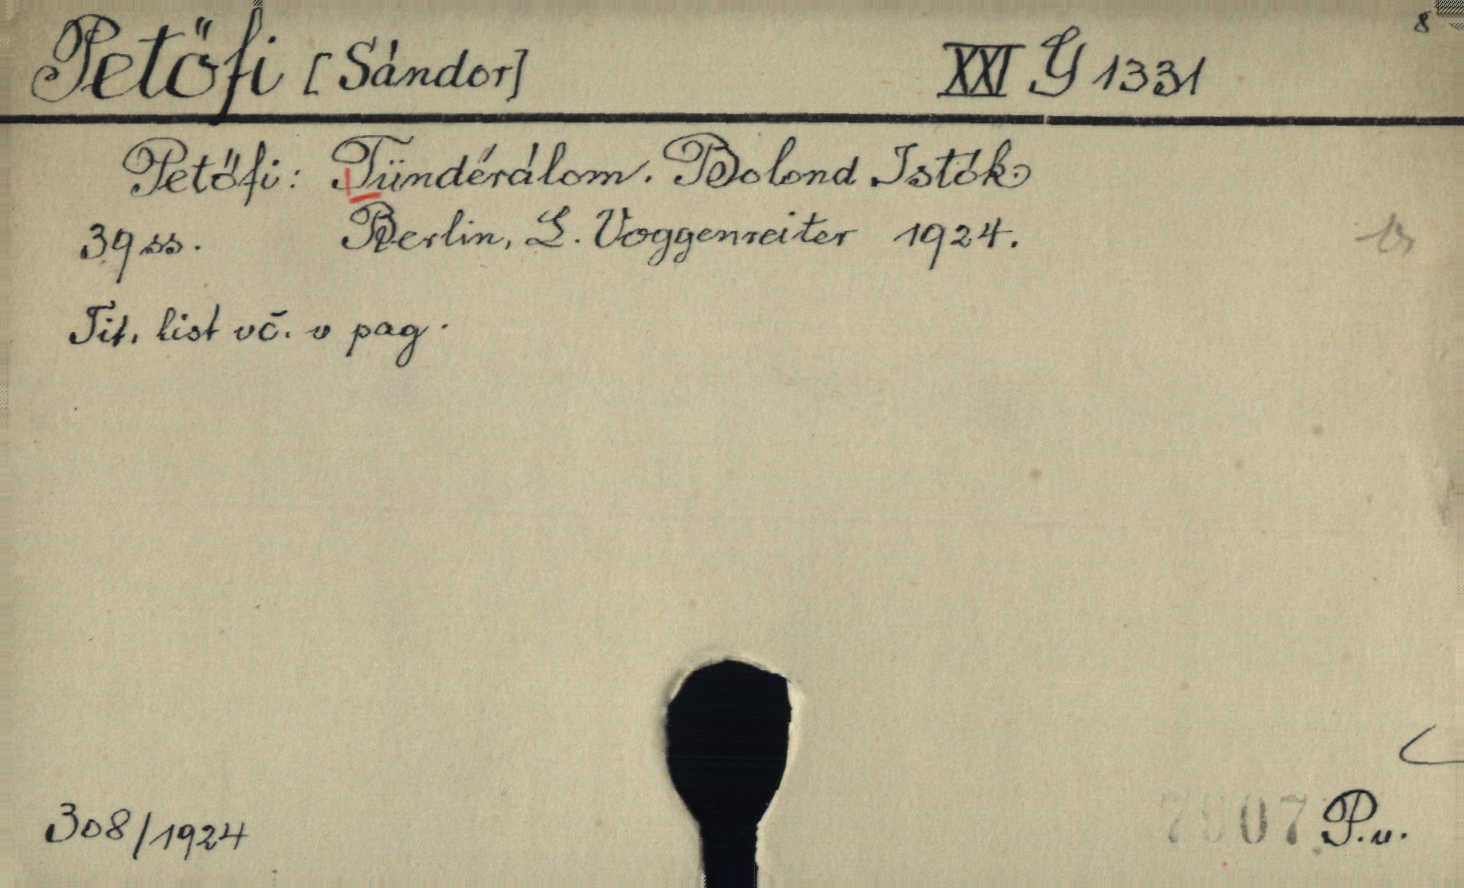 8
Petőfi [Sándor] XXI G 1331
Petőfi: Tündérálom. Bolond Istók
39 ss. Berlin, L. Voggenreiter 1924.
Tit. list vč. v pag.
308/1924 P.v.